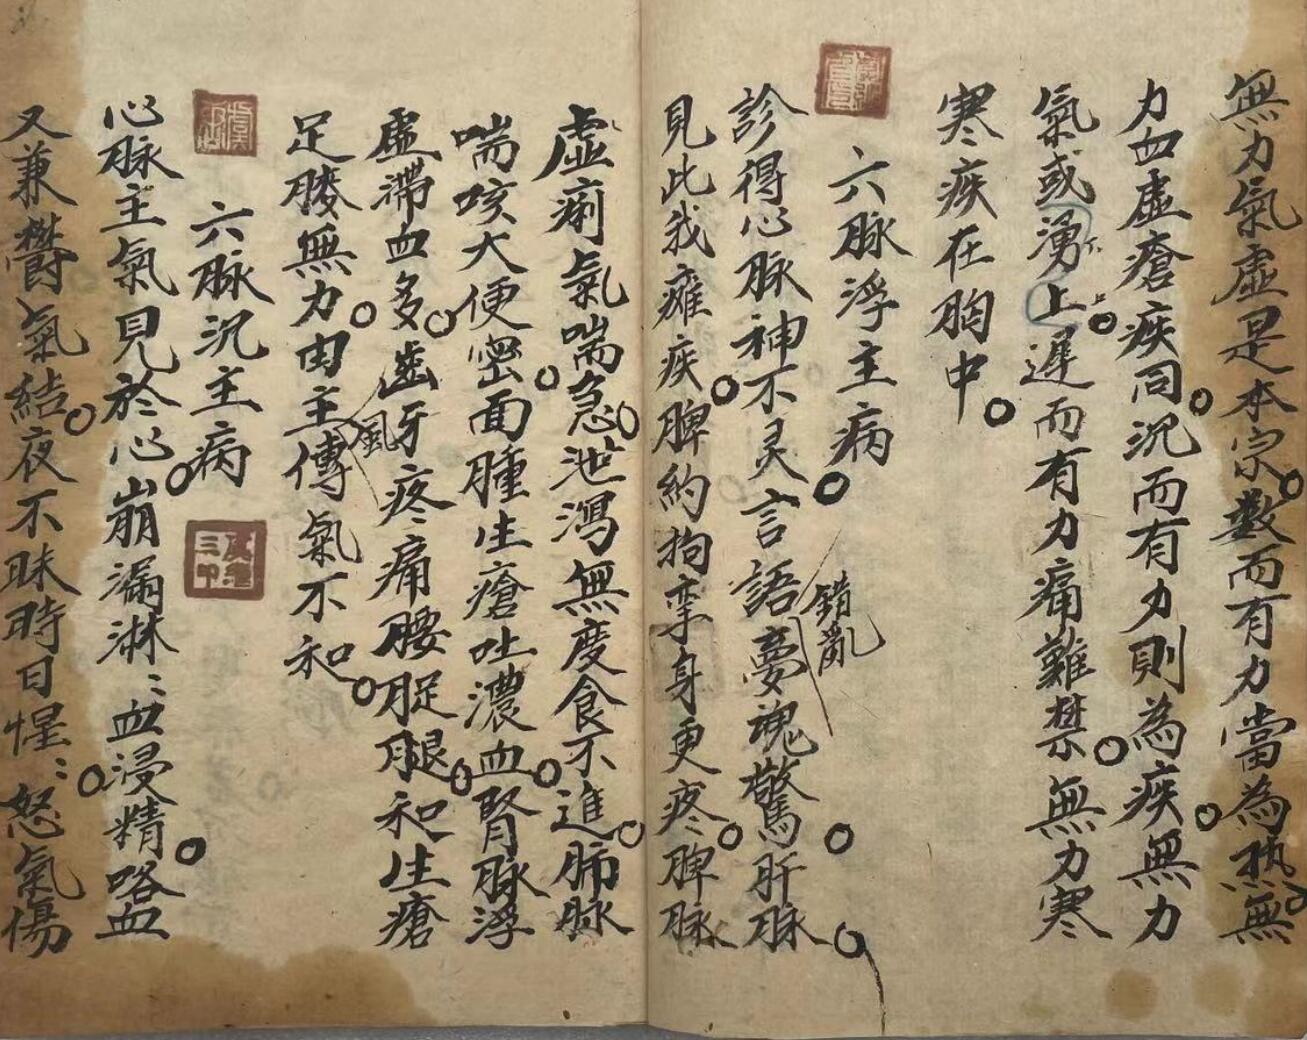 無力氣虛是本宗數而有力當為熱無
力血虛瘡疾同沉而有力則為疾無力
氣或湧上遲而有力痛難禁無力寒
寒疾在胸中
六脉浮主病
診得心脉神不灵言語夢魂驚肝脉
錯亂
見此我癱疾脾約拘挛身更疼脾脉
虛痢氣喘急泄瀉無度食不進肺脉
喘咳大便密面腫生瘡吐濃血腎脉浮
虛滯血多齒牙疼痛腰足腿和生瘡
風
足膝無力由主傳氣不和
六脉沉主病
心脉主氣見於心崩漏淋:血浸精咯血
又兼欝氣結夜不昧時日惺:怒氣傷